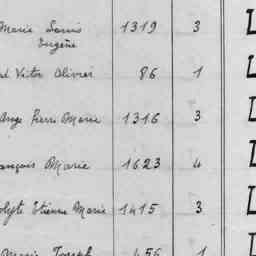 Marie Louis 1319 3 L
Eugène
Victor Olivier 86 1 L
Ange Pierre Marie 1316 3 L
ançois Marie 1623 4 L
olyte Etienne Marie 1415 3 L
Marie Joseph 456 1 L